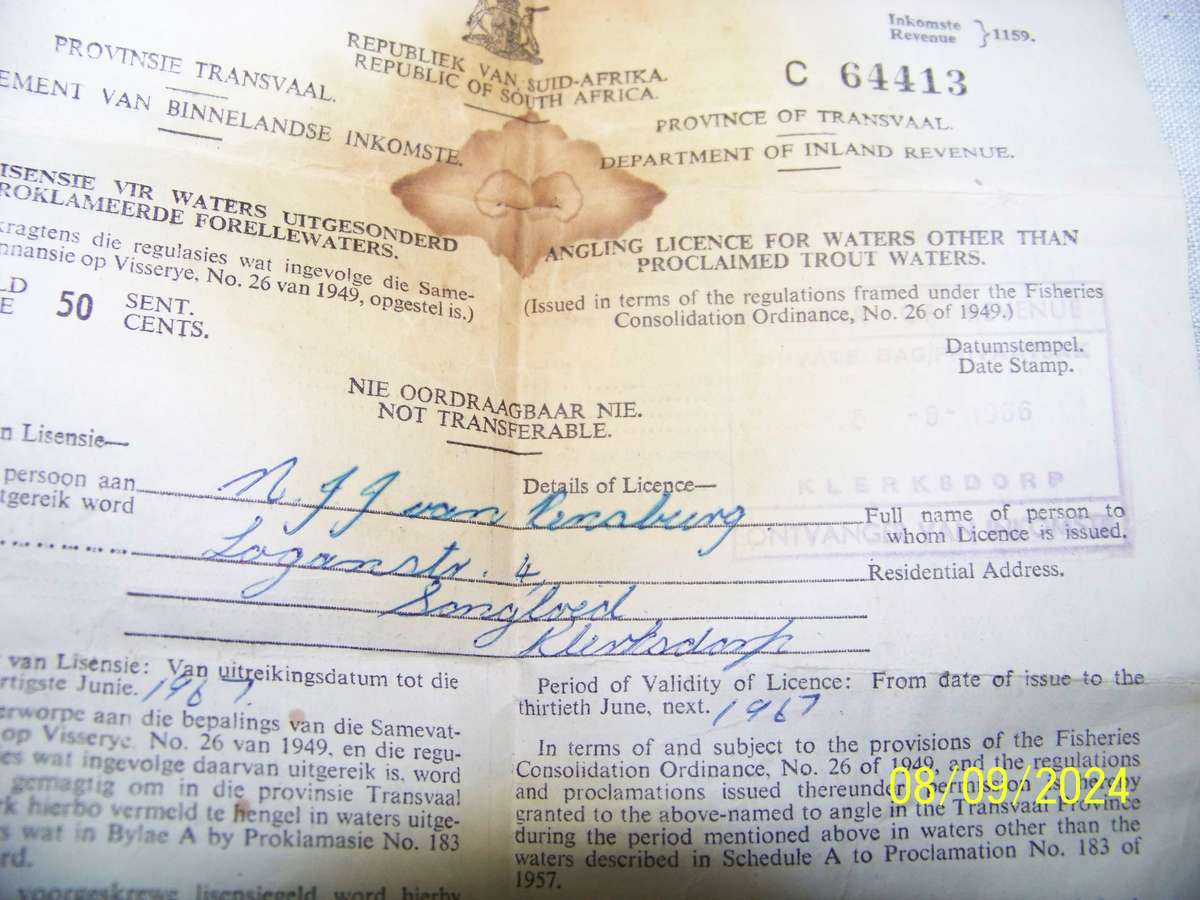 Inkomste
Revenue } 1159.
C 64413
REPUBLIEK VAN SUID-AFRIKA.
REPUBLIC OF SOUTH AFRICA.
PROVINSIE TRANSVAAL.
EMENT VAN BINNELANDSE INKOMSTE.
PROVINCE OF TRANSVAAL.
DEPARTMENT OF INLAND REVENUE.
ISENSIE VIR WATERS UITGESONDERD
ROKLAMEERDE FORELLEWATERS.
kragtens die regulasies wat ingevolge die Same-
nnansie op Visserye, No. 26 van 1949, opgestel is.)
LD
E 50 SENT.
CENTS.
ANGLING LICENCE FOR WATERS OTHER THAN
PROCLAIMED TROUT WATERS.
(Issued in terms of the regulations framed under the Fisheries
Consolidation Ordinance, No. 26 of 1949.)
Datumstempel.
Date Stamp.
-8-1966
KLERKSDORP
ONTVANGER VAN INKOMSTE
NIE OORDRAAGBAAR NIE.
NOT TRANSFERABLE.
n Lisensie—
persoon aan
tgereik word
Details of Licence—
N. J J van Rensburg
Full name of person to
whom Licence is issued.
Loganstr. 4,
Residential Address.
Songloed
Klerksdorp
van Lisensie: Van uitreikingsdatum tot die
rtigste Junie. 1967.
erworpe aan die bepalings van die Samevat-
op Visserye, No. 26 van 1949, en die regu-
es wat ingevolge daarvan uitgereik is, word
gemagtig om in die provinsie Transvaal
rk hierbo vermeld te hengel in waters uitge-
s wat in Bylae A by Proklamasie No. 183
rd.
voorgeskrewe lisensiegeld word hierby
Period of Validity of Licence: From date of issue to the
thirtieth June, next. 1967
In terms of and subject to the provisions of the Fisheries
Consolidation Ordinance, No. 26 of 1949, and the regulations
and proclamations issued thereunder, permission is hereby
granted to the above-named to angle in the Transvaal Province
during the period mentioned above in waters other than the
waters described in Schedule A to Proclamation No. 183 of
1957.
08/09/2024